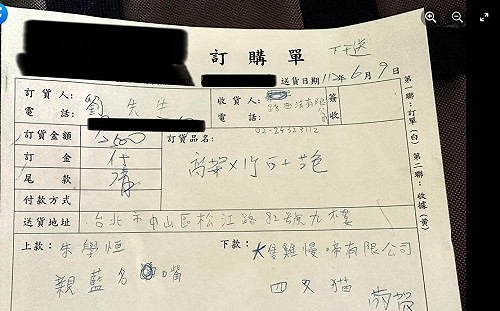 訂購單
下午送
送貨日期 112年6月9日
訂貨人: 劉先生
電話:
收貨人:
路 西法有限公司
電話: 02-24323112
簽收
訂貨金額
訂貨品名:
訂金 付
尾款 清
付款方式
送貨地址 台北市中山區松江路82號九樓
上款: 朱學恒
下款: 大隻雞慢啼有限公司
親藍名嘴
四叉猫
敬賀
第一聯:訂單(白) 第二聯:收據(黃)